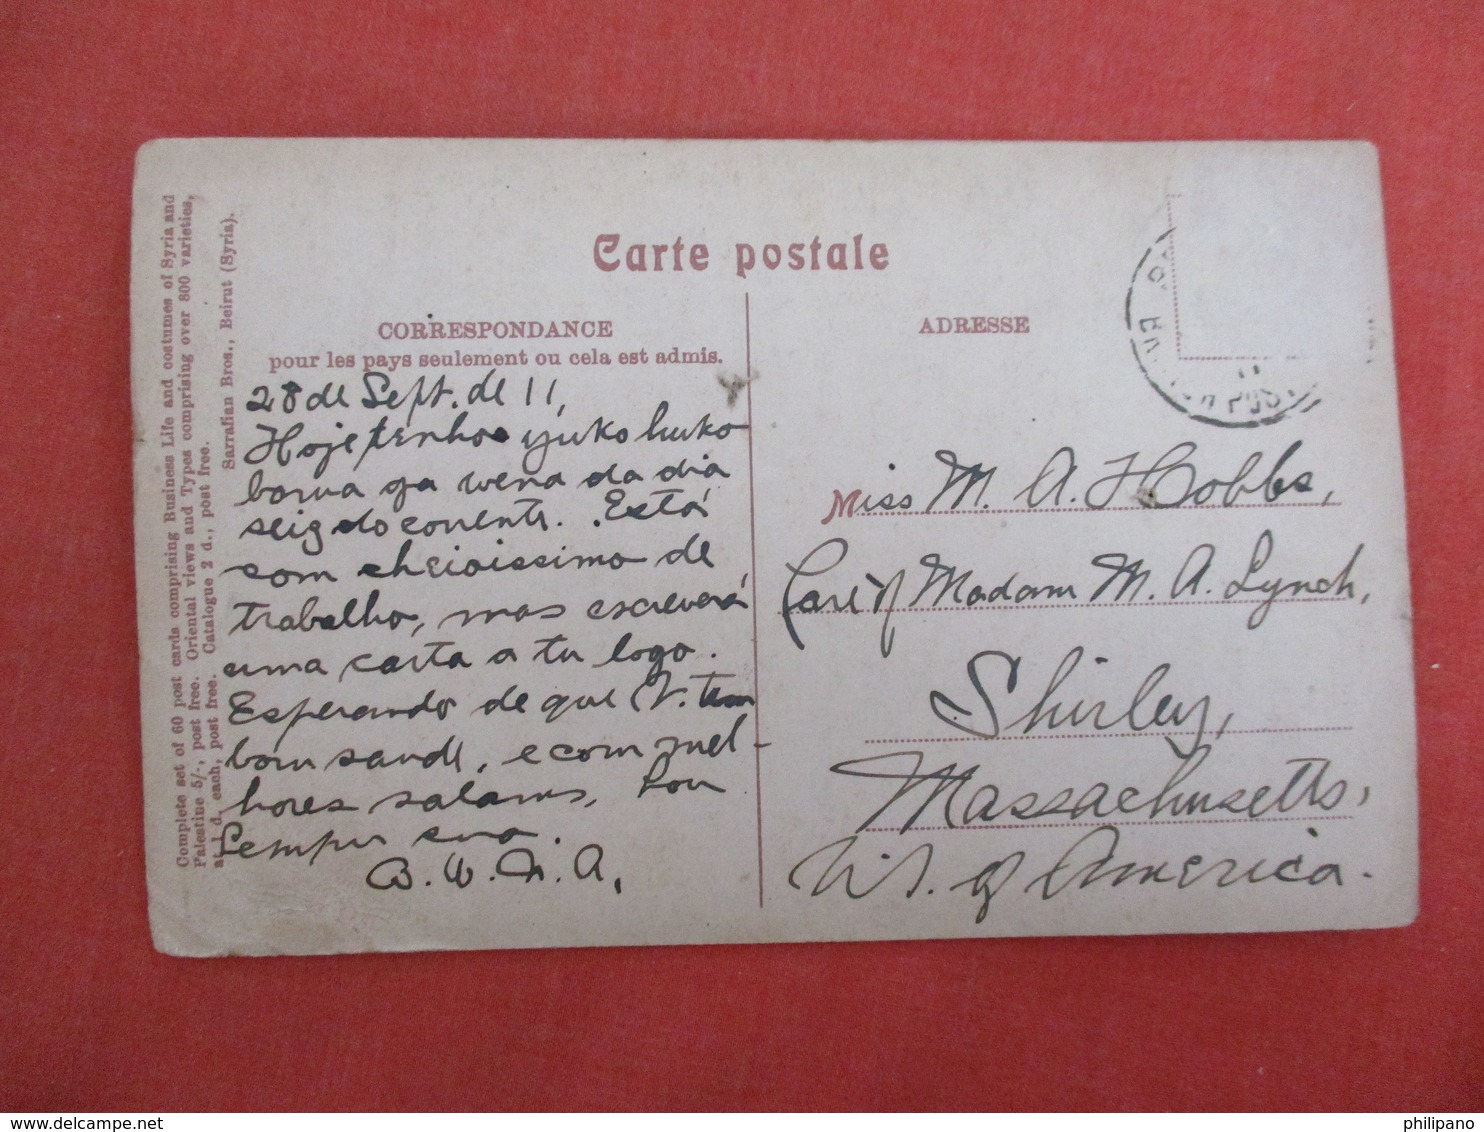 Carte postale
CORRESPONDANCE
pour les pays seulement ou cela est admis.
ADRESSE
28 de Sept. de 11,
Hoje tenho
da dia
Está
com cheioissimo de
trabalho, mas escreverá
uma carta a tu logo.
Esperando de que V. tem
bom saude, e com mel-
hores salams,
Sempre sua.
Miss M. A. Hobbs,
Care of Madam M. A. Lynch,
Shirley,
Massachusetts,
U.S. of America.
Complete set of 60 post cards comprising Business Life and costumes of Syria and
Palestine 5/-, post free. Oriental views and Types comprising over 800 varieties,
at 1 d. each, post free. Catalogue 2 d., post free.
Sarrafian Bros., Beirut (Syria).
philipano